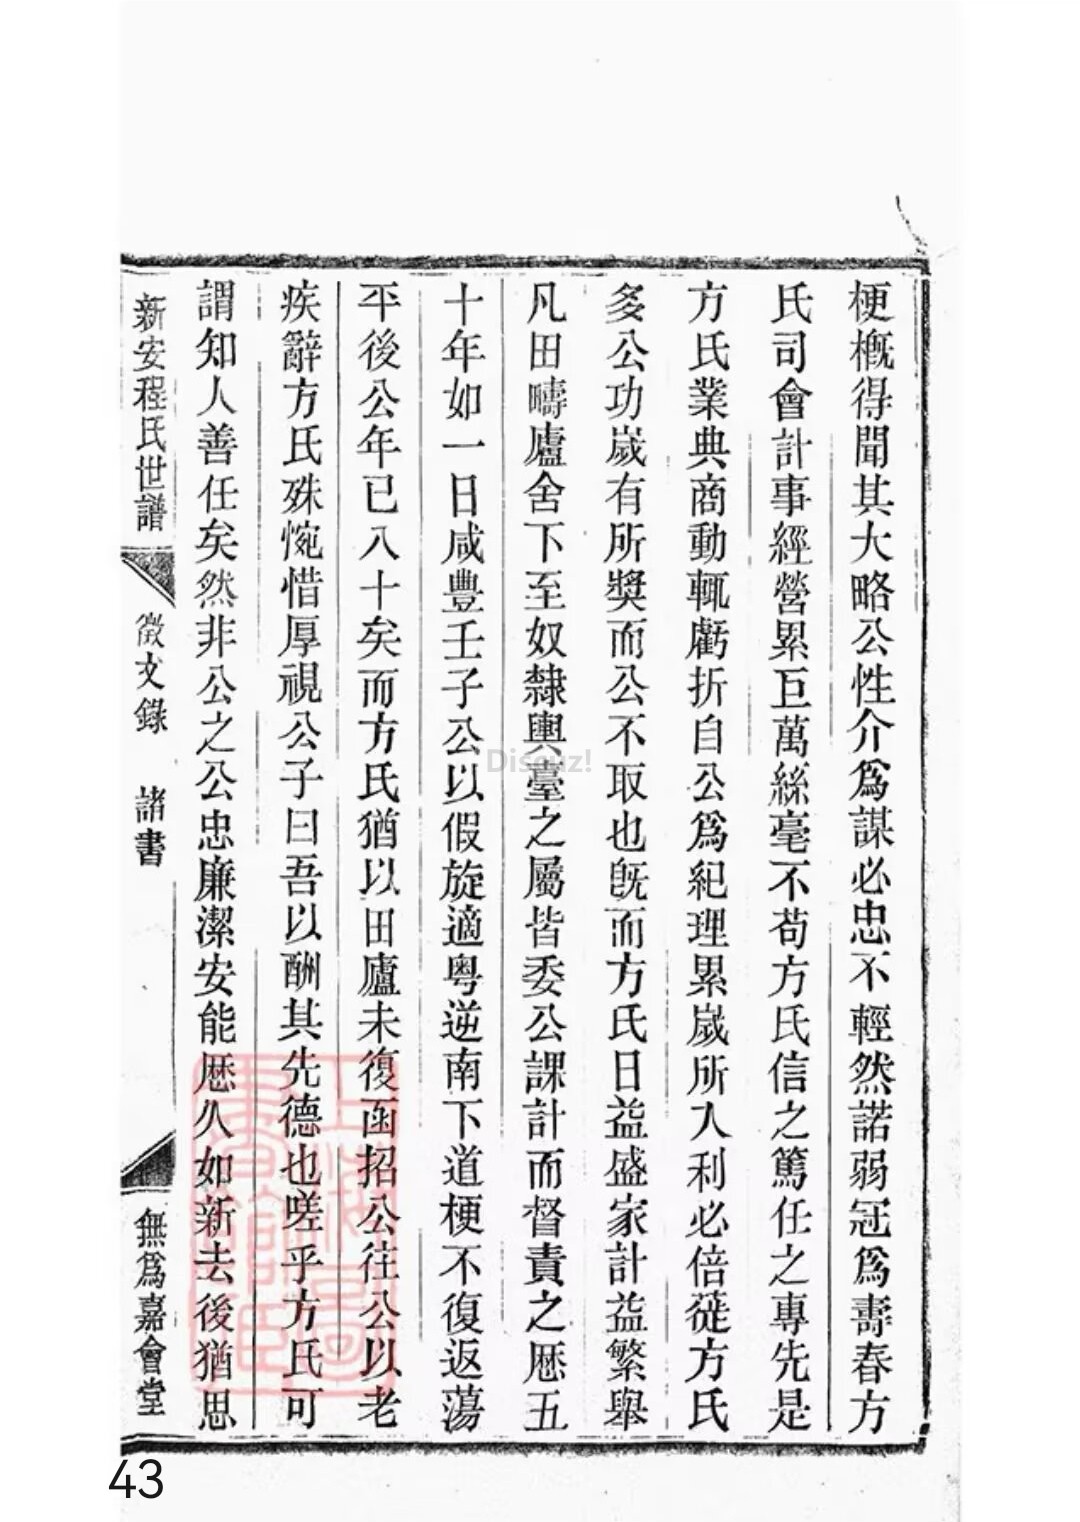 梗概得聞其大略公性介爲謀必忠不輕然諾弱冠爲壽春方
氏司會計事經營累巨萬絲毫不苟方氏信之篤任之專先是
方氏業典商動輒虧折自公爲紀理累歲所入利必倍蓰方氏
多公功歲有所獎而公不取也旣而方氏日益盛家計益繁舉
凡田疇廬舍下至奴隸輿臺之屬皆委公課計而督責之厯五
十年如一日咸豐壬子公以假旋適粵逆南下道梗不復返蕩
平後公年已八十矣而方氏猶以田廬未復函招公往公以老
疾辭方氏殊惋惜厚視公子曰吾以酬其先德也嗟乎方氏可
謂知人善任矣然非公之公忠廉潔安能厯久如新去後猶思
新安程氏世譜
徵文錄
諸書
無爲嘉會堂
上海圖書館藏
Discuz!
43